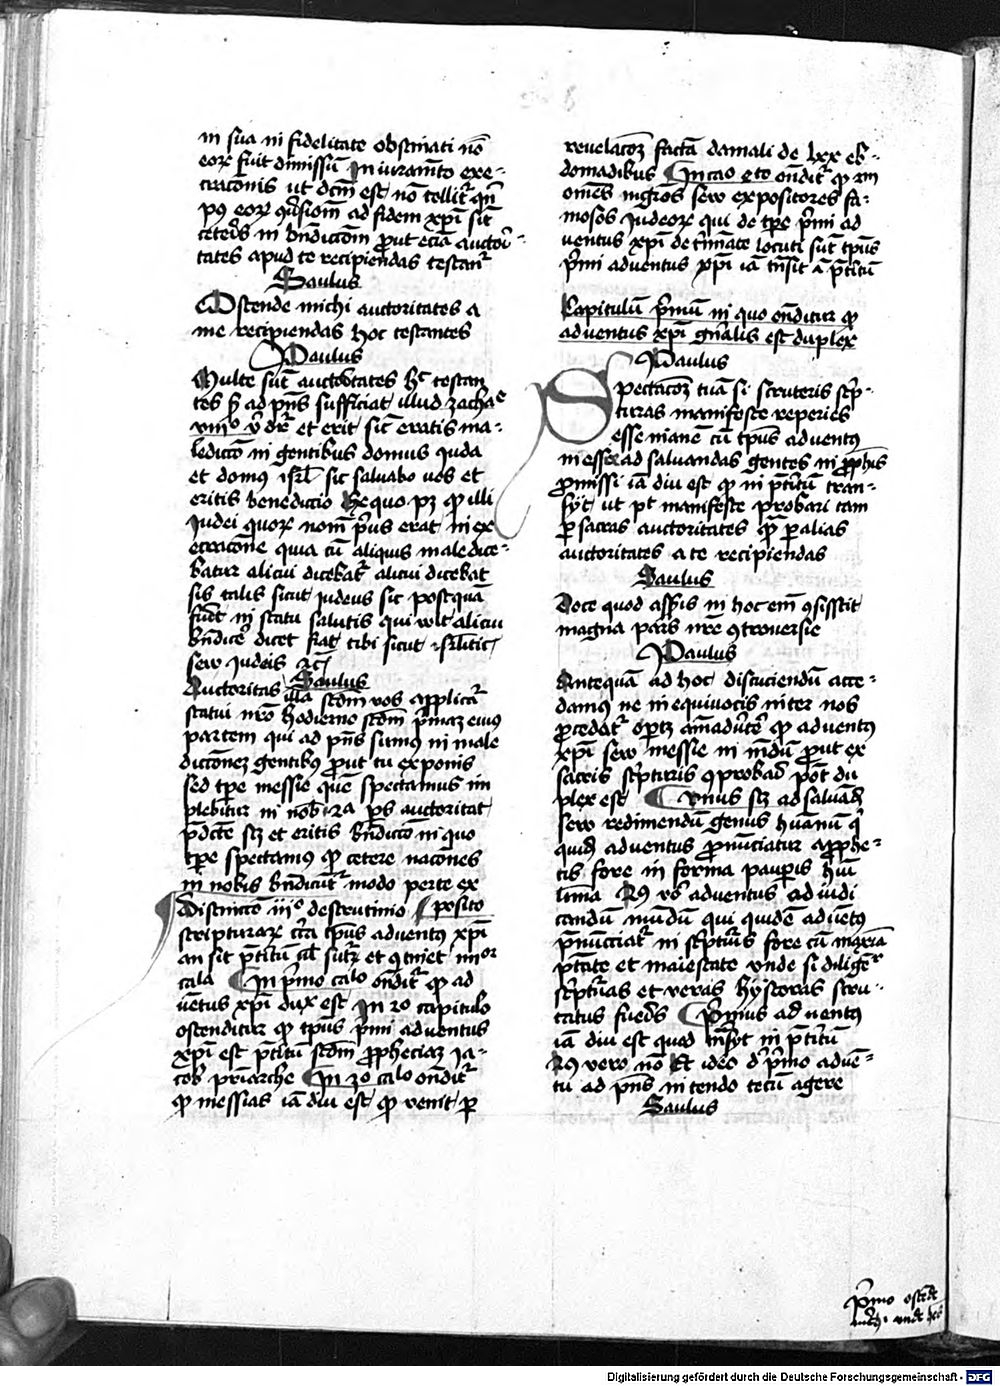 in sua in fidelitate obstinati nō
eoꝝ fuit dimissū In iuramēto exe-
cracōnis ut dcm̄ est nō tollitᷓ qn̄
p9 eoꝝ ꝯūsionē ad fidem xp̄i sit
ceteris in bn̄dictōm prout eciā auctōi-
tates apud te recipiendas testanᷓ
Saulus
Ostende michi auctoritates a
me recipiendas hoc testantes
Paulus
Multe sūt auctōtates hͨ testan
tes ad pn̄s sufficiat illud zachaͤ
viiiͦ et erit sicᷓ eratis ma-
ledictō in gentibus domus iuda
et domꝯ isrl̄ sic saluabo uos et
eritis benedictio Ex quo pꝫ ꝙ illi
Iudei quoꝝ nomē pͥus erat in ex
ecracōne quia cū aliquis maledice-
batur alicui dicebatᷓ alicui dicebat
sis talis sicut iudeus sic postquā
fuerit in statu salutis qui volt alicui
bn̄dicē dicet fiat tibi sicut isrlitic
seu iudeis ꝛc̄
Saulus
Auctoritas illa scdm vos applicatᷓ
statui nr̄o hodierno scdm pͥmaꝫ eius
partem qui ad pn̄s sumus in male
dictionez gentibꝯ prout tu exponis
sed tpe messie quē spectamus im
plebitur in nob̄ 2ᵃ ps auctoritatꝭ
pdc̄te sꝫ et eritis bn̄dictō in quo
tpe spectamꝯ ꝙ cetere nacōnes
in nobis bn̄dicūtᷓ modo perte ex
Distinctō iiiͦ de scrutinio posito
scripturaꝝ circa tpus aduentꝯ xp̄i
an sit pͣtitū ul̓ futuꝝ et ꝯtinet iiiiᵒʳ
cala In pͥmo calo on̄ditᷓ ꝙ ad
uētus xp̄i dux est In 2ͦ capitulo
ostenditur ꝙ tpus pͥmi aduentus
xp̄i est pͣtitū scdm propheciaꝫ Ia-
cob pͣriarche In 3ͦ calo on̄ditᷓ
ꝙ messias iā diu est ꝙ venit per
reuelacōꝫ factā danieli de lxx eb-
domadibus In cao 4to on̄ditᷓ ꝙ
omēs mgros seu expositores fa-
mosos Iudeoꝝ qui de tpe pͥmi ad
uentus xp̄i determinate locuti sūt tpus
pͥmi aduentus xp̄i iā tn̄siit pͣtitū
Capitulū pͥmū in quo on̄ditur ꝙ
aduentus xp̄i gn̄alis est duplex
Paulus
Spectacōꝫ tuā si scruteris scͥp-
turas manifeste reperies
esse inanē cū tpus aduentꝯ
messie ad saluandas gentes in prophis
promissi iā diu est ꝙ in pͣtitū tran-
syt ut pt manifeste probari tam
per sacras auctoritates ꝙ per alias
auctoritates a te recipiendas
Saulus
Doce quod asseris in hoc em̄ ꝯsistit
magna pars nr̄e ꝯtrouersie
Paulus
Antequā ad hoc discuciendū acce-
damus ne in equiuocis inter nos
procedatᷓ oportꝫ ꝙ aduentꝯ
xp̄i seu messie in mūdū prout ex
sacris scͥpturis ꝯprobari pōt du
plex est Vnus scꝫ ad saluandū
seu redimendū genus huānū qͥ
quidē aduentus pronūciatur a prophe-
tis fore in forma pauperis
aduentus ad iudi
candū mūdū qui quidē aduētꝯ
pͣnūciatᷓ in scͥpturis fore cū maxia
ptāte et maiestate vnde si diligēter
scͥpturas et veras hystorias scru-
tatus fueris Primus aduentꝯ
iā diu est quod tn̄syt in pͣtitū
vero nō Et ideo de pͥmo aduē-
tu ad pn̄s intendo tecū agere
Saulus
Pͥmo ostēde
michi vnde
Digitalisierung gefördert durch die Deutsche Forschungsgemeinschaft - DFG